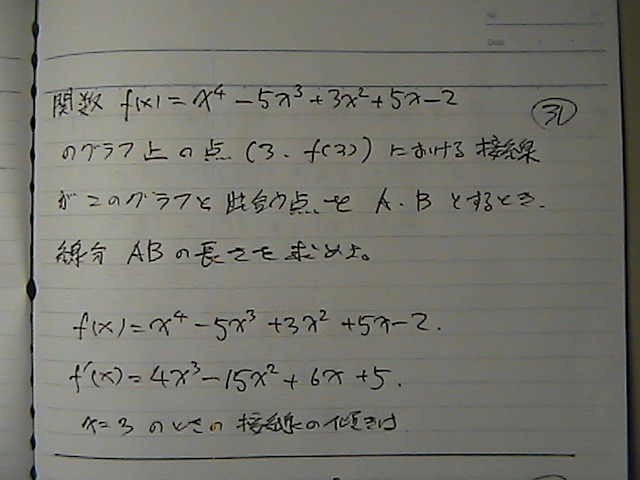 No.
Date
関数 f(x) = x⁴ - 5x³ + 3x² + 5x - 2
31
のグラフ上の点 (3, f(3)) における接線
がこのグラフと出会う点を A, B とするとき,
線分 AB の長さを求めよ。
f(x) = x⁴ - 5x³ + 3x² + 5x - 2.
f'(x) = 4x³ - 15x² + 6x + 5.
x=3 のときの接線の傾きは